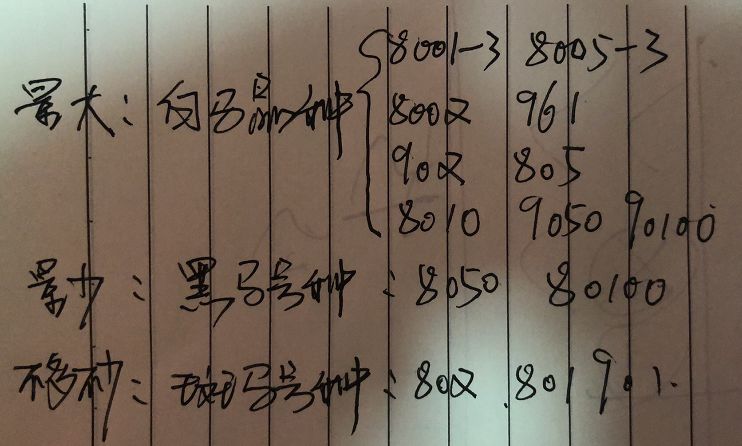 8001-3 8005-3
量大: 白马品种 8002 961
902 805
8010 9050 90100
量少: 黑马品种: 8050 80100
不移植: 斑马品种: 802 801 901.